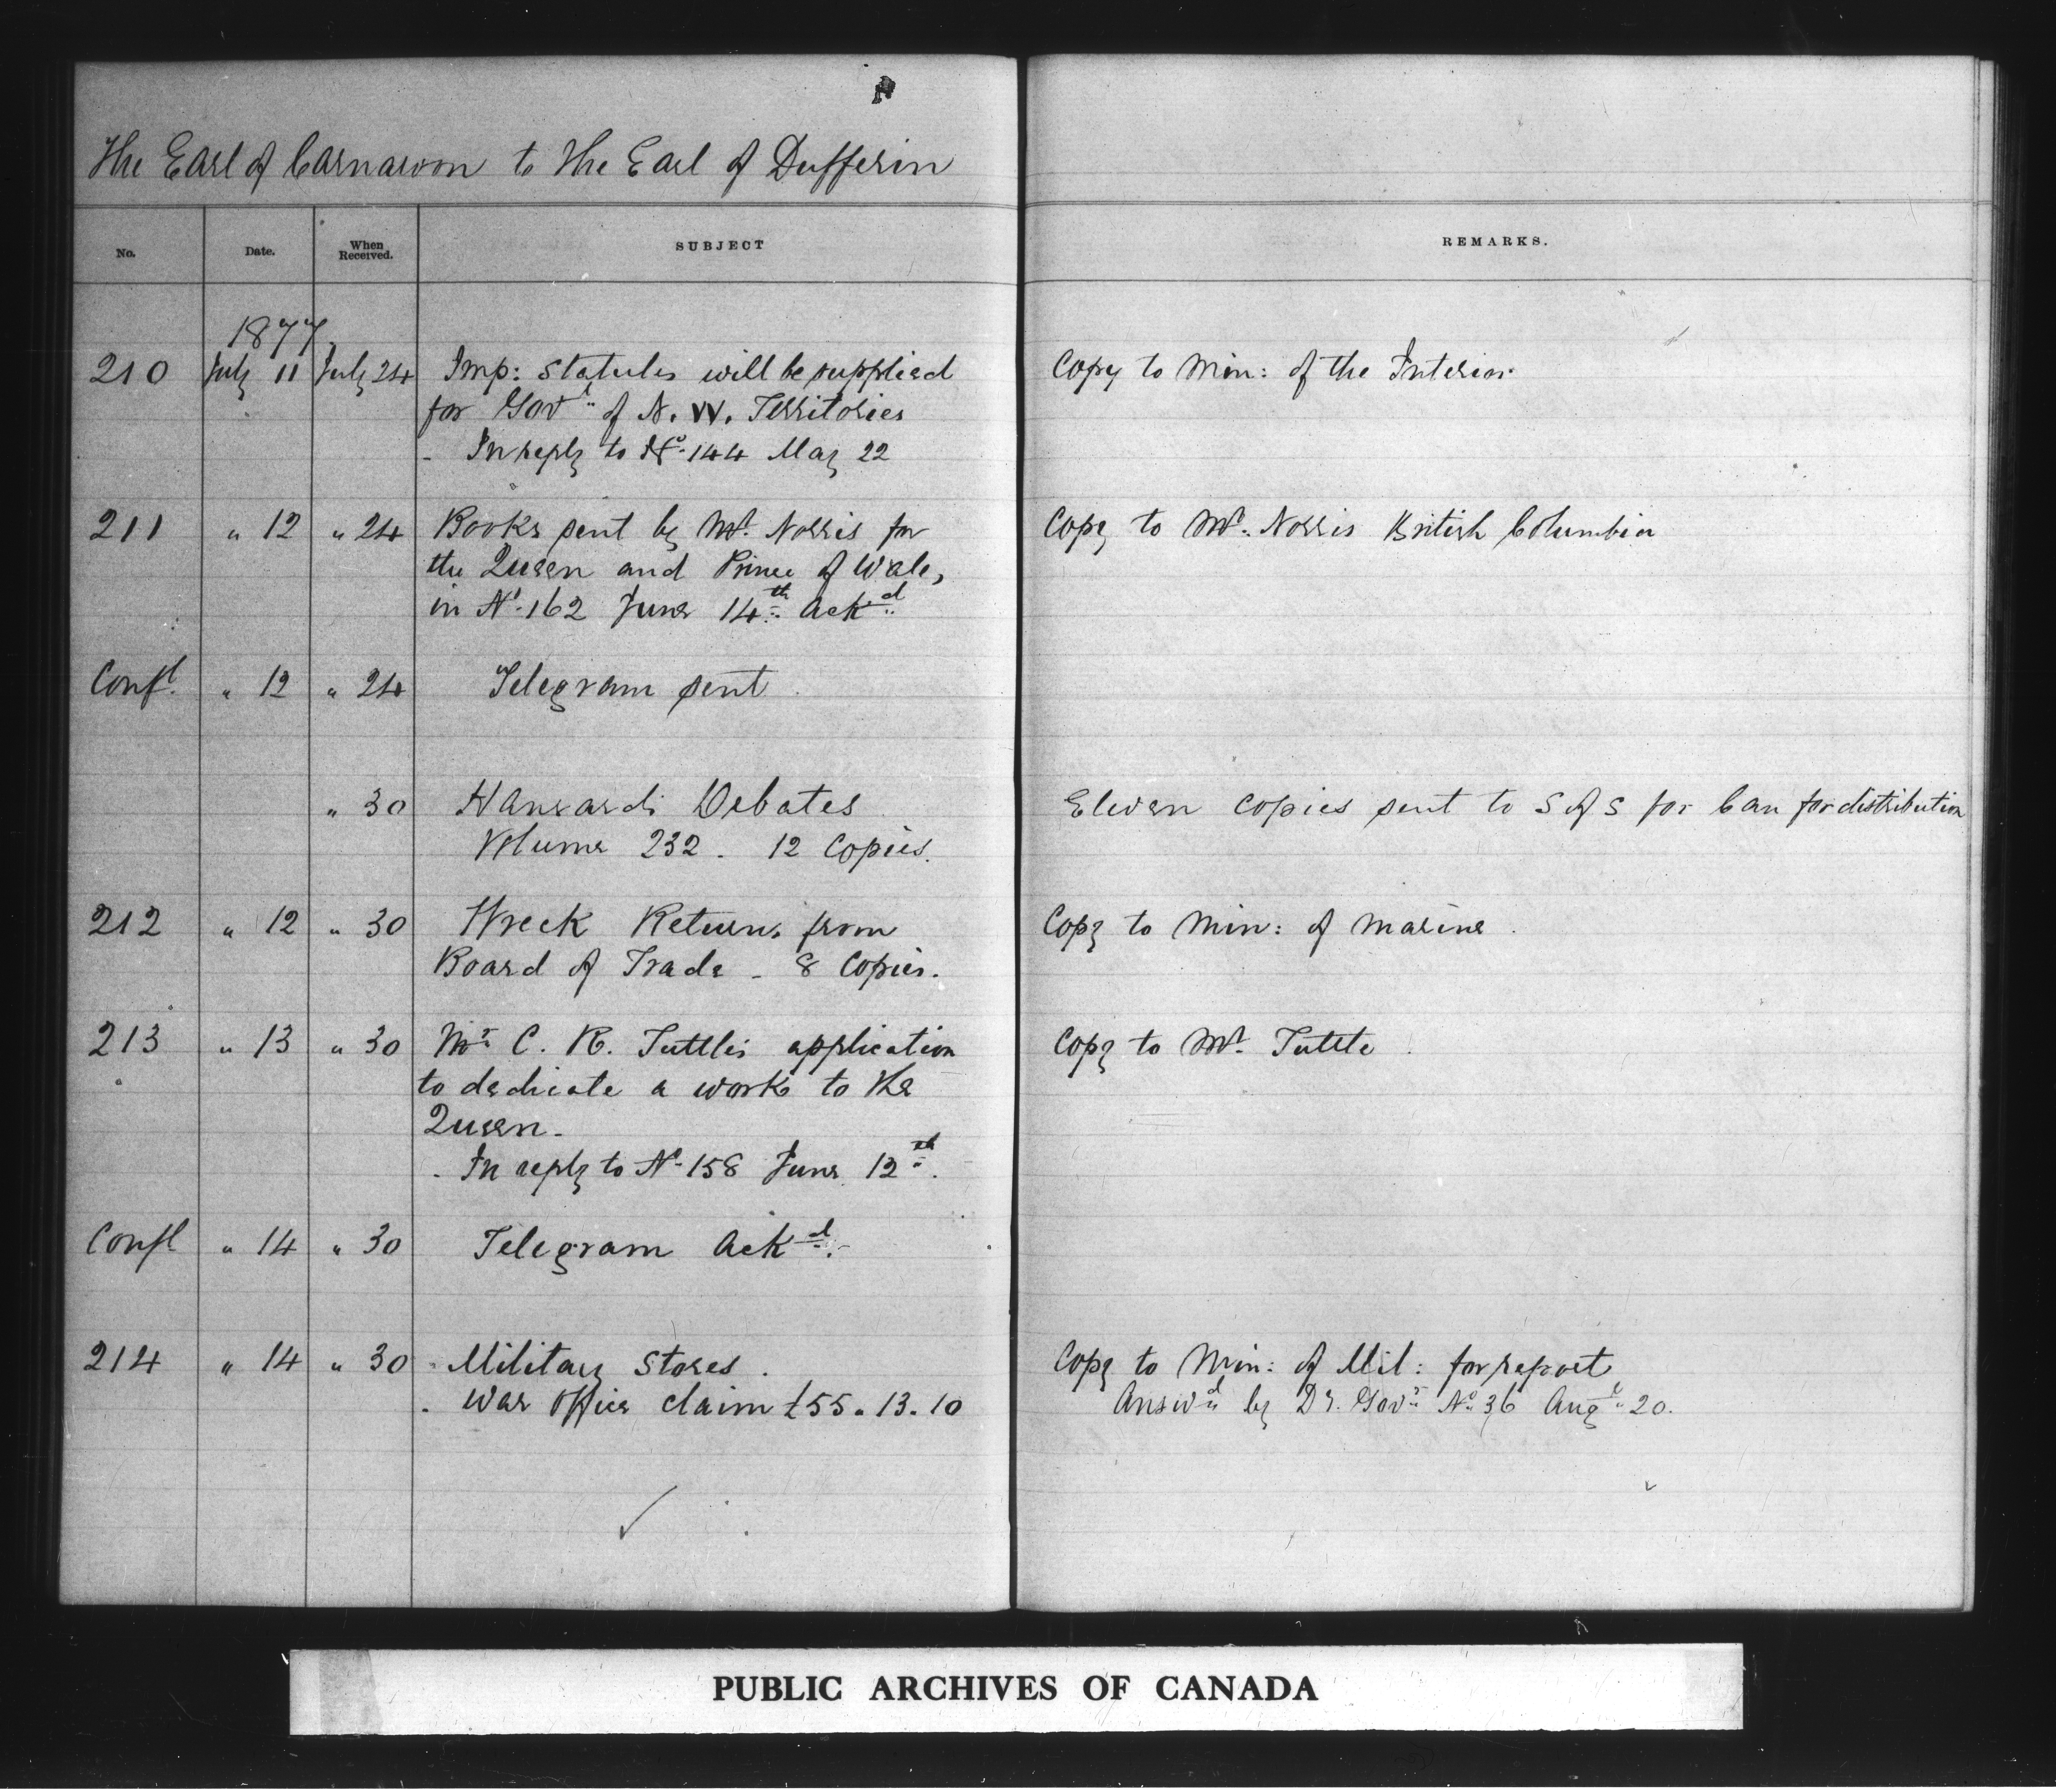 The Earl of Carnarvon to the Earl of Dufferin
No. Date. When Received. SUBJECT REMARKS.
1877
210 July 11 July 24 Imp: Statutes will be supplied Copy to Min: of the Interior
for Govt of N. W. Territories
- In reply to No. 144 May 22
211 " 12 " 24 Books sent by Mr. Norris for Copy to Mr. Norris British Columbia
the Queen and Prince of Wales
in No. 162 June 14th Ackd
Confl. " 12 " 24 Telegram sent
" 30 Hansards Debates Eleven Copies sent to S of S for Can for distribution
Volume 232. 12 Copies.
212 " 12 " 30 Wreck Returns from Copy to Min: of Marine
Board of Trade - 8 Copies.
213 " 13 " 30 Mr C. R. Tuttle's application Copy to Mr. Tuttle
to dedicate a work to the
Queen -
- In reply to No. 158 June 12th.
Confl " 14 " 30 Telegram Ackd.
214 " 14 " 30 Military Stores. Copy to Min: of Mil: for report
- War Office claim £55.13.10 Answd by Dy. Govr No. 36 Augt 20.
PUBLIC ARCHIVES OF CANADA